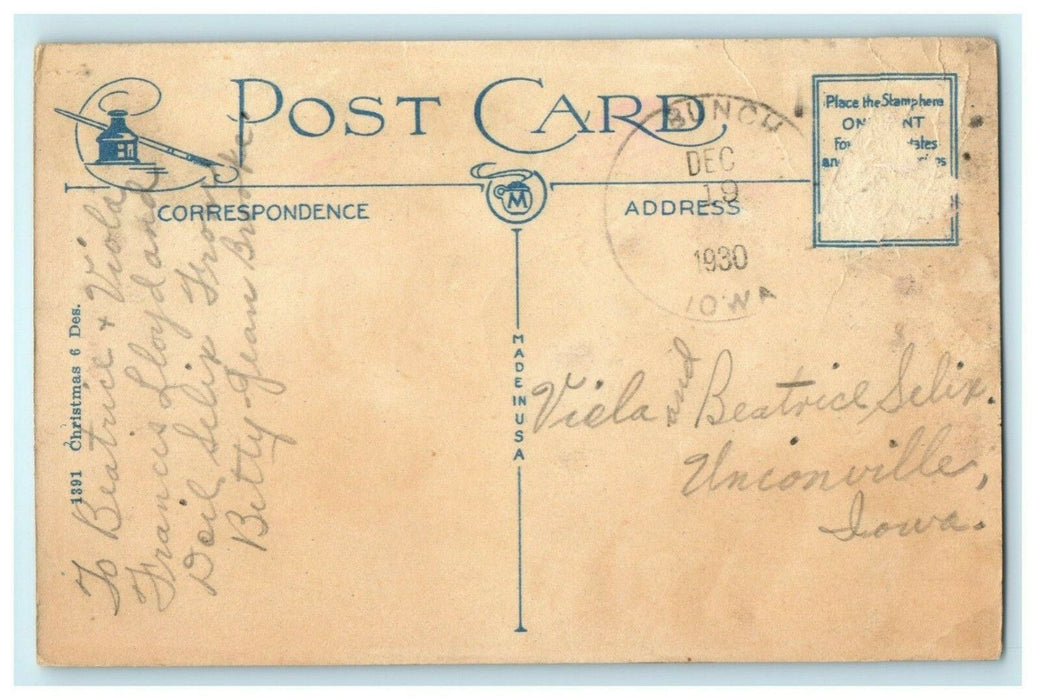 POST CARD
CORRESPONDENCE
ADDRESS
M
Place the Stamp here
ON
NT
For
ates
an
BUNCH
DEC
19
1930
IOWA
MADE IN USA
1391 Christmas 6 Des.
To Beatrice + Viola
Francis Loyd and
Selix From
Betty Jean Brooke
Viola and Beatrice Selix.
Unconville,
Iowa.